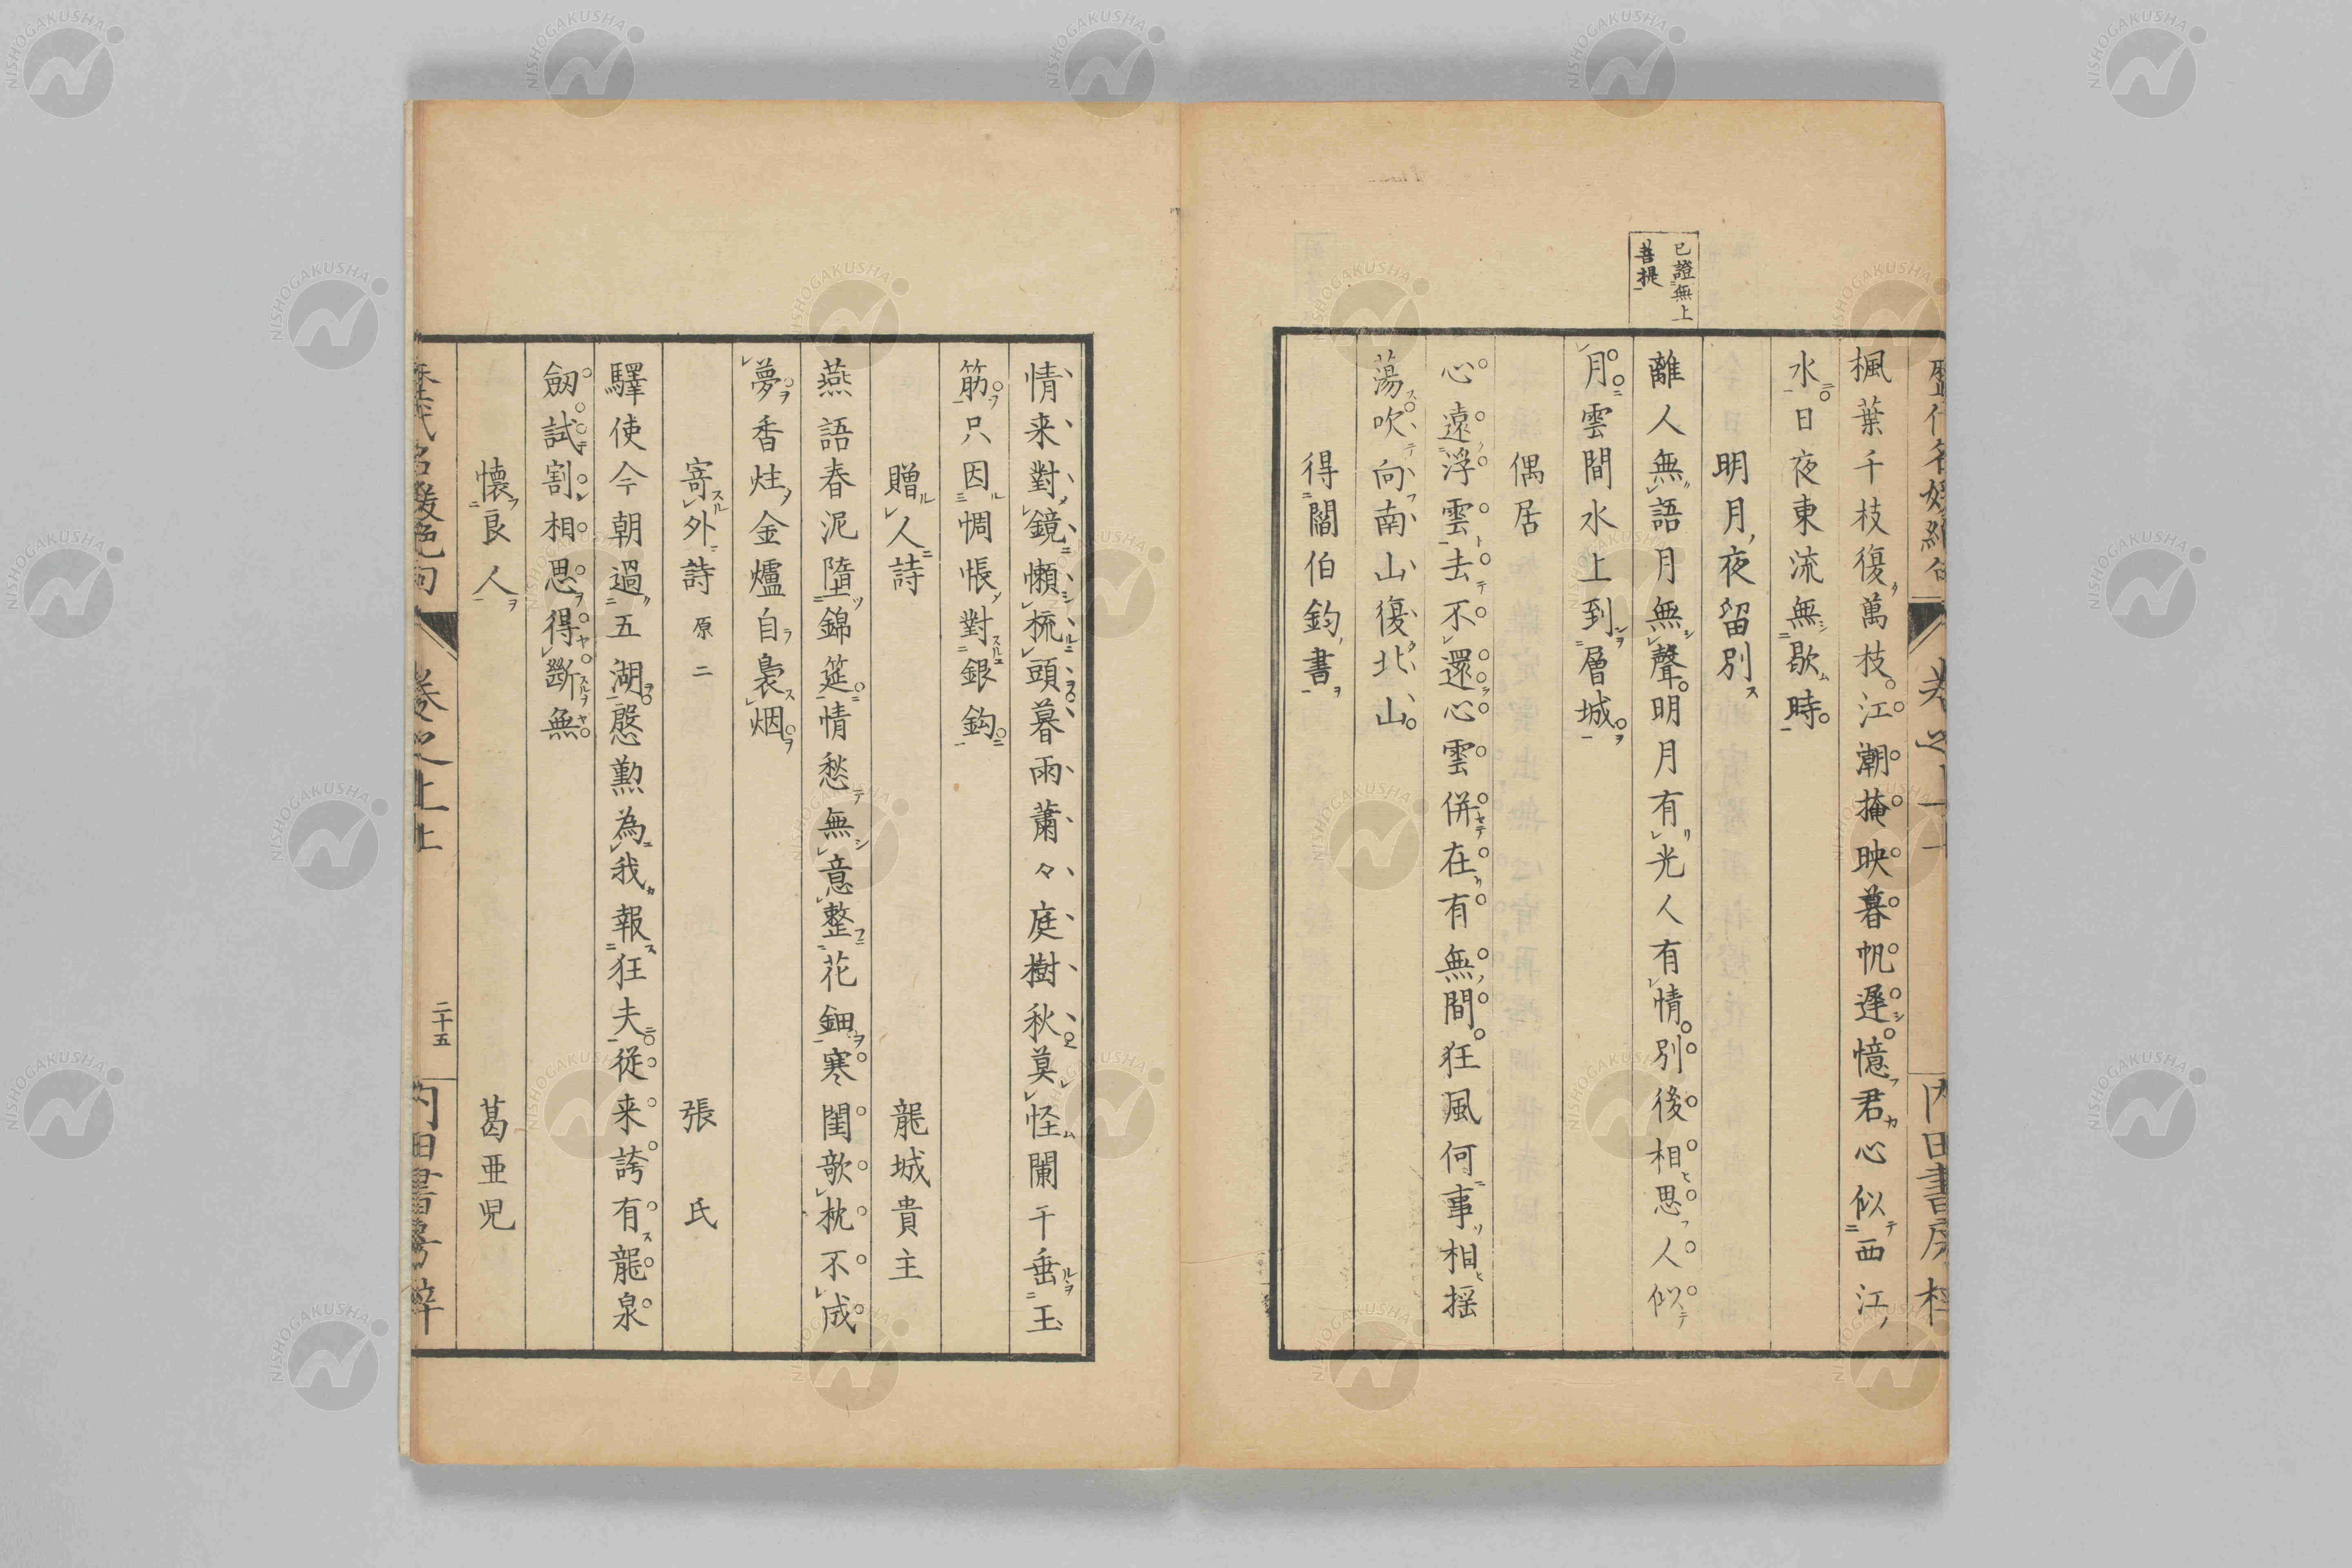 已證無上
菩提
楓葉千枝復萬枝江潮掩映暮帆遲憶君心似西江
水日夜東流無歇時
明月夜留別
離人無語月無聲明月有光人有情別後相思人似
月雲間水上到層城
偶居
心遠浮雲去不還心雲併在有無間狂風何事相搖
蕩吹向南山復北山
得閻伯鈞書
情来對鏡懶梳頭暮雨蕭々庭樹秋莫怪闌干垂玉
筯只因惆悵對銀鈎
贈人詩 龍城貴主
燕語春泥墮錦筵情愁無意整花鈿寒閨欹枕不成
夢香炷金爐自裊烟
寄外詩 原二 張氏
驛使今朝過五湖慇懃為我報狂夫從来誇有龍泉
劔試割相思得斷無
懷良人 葛亜児
卷之上上
二十五
內田書房梓
NISHOGAKUSHA